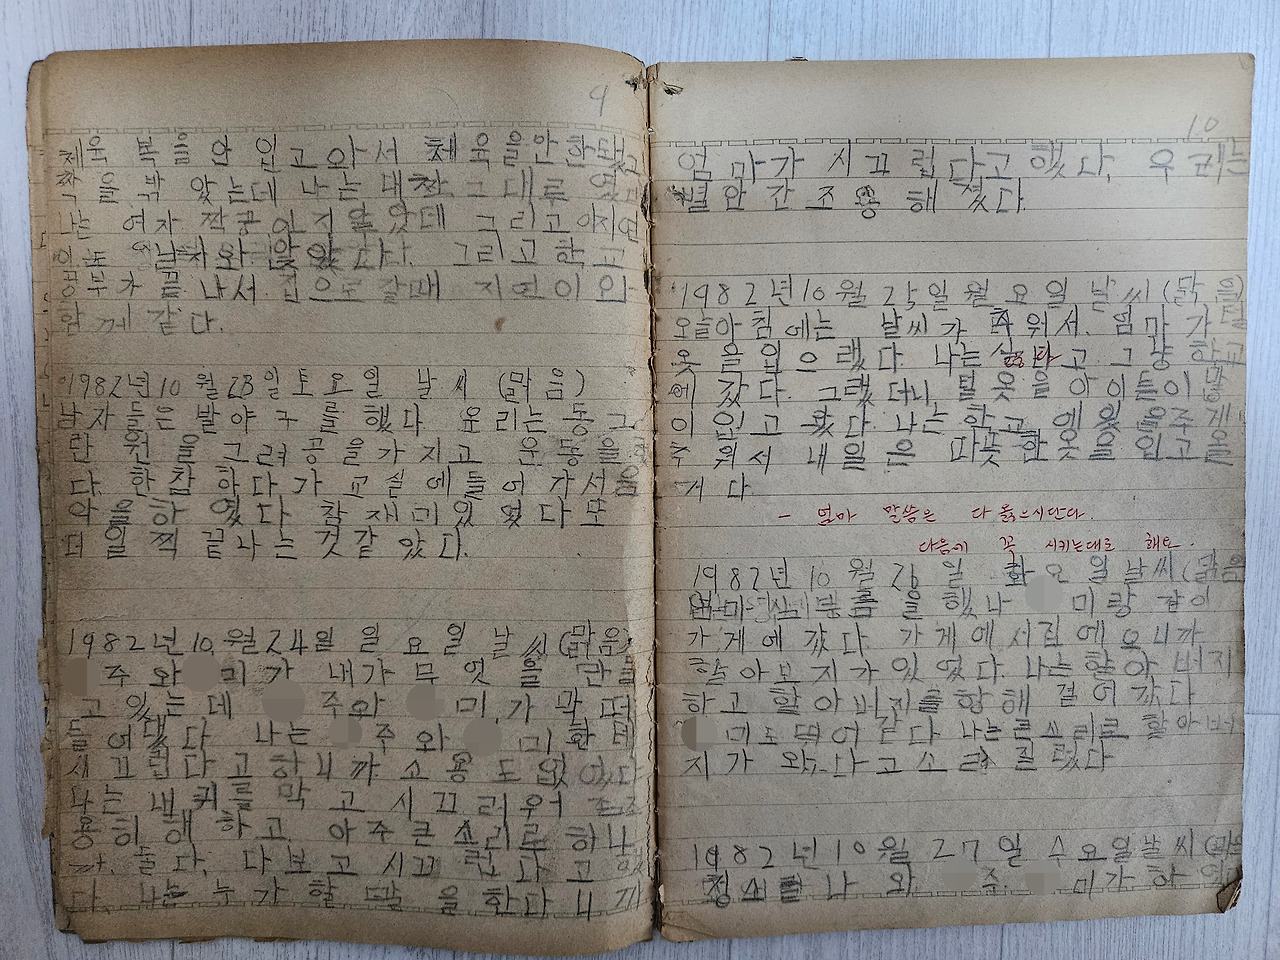 9
체육 복을 안 입고 와서 체육을 안 한
을 밖 았는데 나는 대 그대로 였
나는 여자 짝궁이 지 았데 그리고 지연
이는 남자와 앉았다. 그리고 학교
공부가 끝나서 집으로 갈때 지연이 와
함께 같다.
1982년 10월 23일 토요일 날씨 (맑음)
남자들은 발야구를 했다 우리는 동그
란 원을 그려 공을 가지고 운동을
다. 한참 하다가 교실에 들어가서 음
악을 하였다 참 재미있었다 또
더 일찍 끝나는 것같았다.
1982년 10월 24일 일요일 날씨 (맑음)
주와 미가 내가 무엇을 만들
고 있는데 주와 미가 막 떠
들어 다 나는 주와 미 한테
시끄럽다고 하니까 소용도 없었다
나는 내 귀를 막고 시끄러워
용히 해 하고 아주 큰 소리로 하나
둘 다, 다 보고 시끄럽다고 했
다 나는 누가 할 말을 한다니까
10
엄마가 시끄럽다고 했다, 우리는
별안간 조용해 졌다.
1982년 10월 25일 월요일 날씨 (맑음)
오늘아침에는 날씨가 추워서. 엄마가 털
옷을 입으랬다. 나는 싫다고 그냥 학교
에 갔다. 그랬더니, 털옷을 아이들이 많
이 입고 왔다 나는 학교에 있을 주게
추워서 내일은 따뜻한옷을 입고 올
거다
- 엄마 말씀은 다 옳으시단다.
다음에 꼭 시키는대로 해요.
1982년 10월 26일 화요일 날씨 (맑음
심부름을 했나 미랑 같이
가게에 갔다. 가게에 서 집에 오니까
할아보지가 있었다. 나는 할아버지
하고 할아버지를 향해 걸어 갔다
미도 띄어 같다 나는 큰소리로 할아버
지가 와 다고 소리 질렀다
1982년 10월 27일 수요일 날씨 (맑음
청소를 나와. 주. 미가. 하